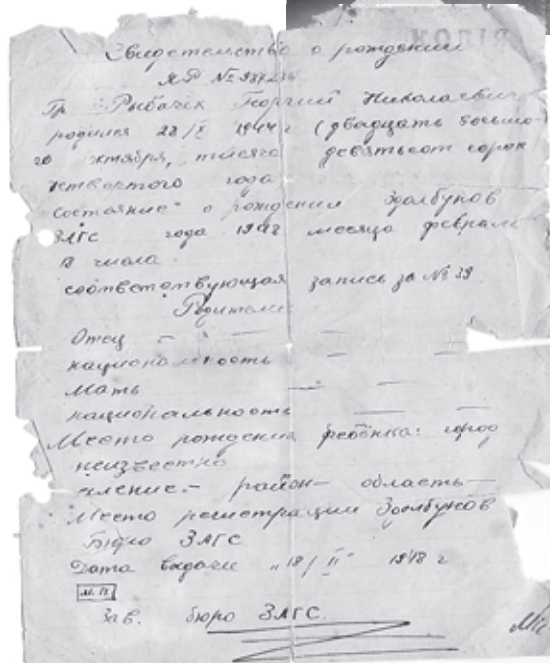 КОПІЯ
Свидетельство о рождении
ЯР №
Гр. Рыбачек Георгий Николаевич
родился 28/X 1944 г (двадцать восьмо-
го октября, тысяча девятьсот сорок
четвертого года
состояние о рождении Здолбунов
ЗАГС года 1948 месяца февраль
числа
соответствующая запись за № 39
Родители:
Отец — —
национальность — —
Мать — —
национальность — —
Место рождения ребёнка: город
неизвестно
ление.- район- область-
Место регистрации Здолбунов
Бюро ЗАГС
Дата выдачи „18/II" 1948 г
М. П.
Зав. бюро ЗАГС.